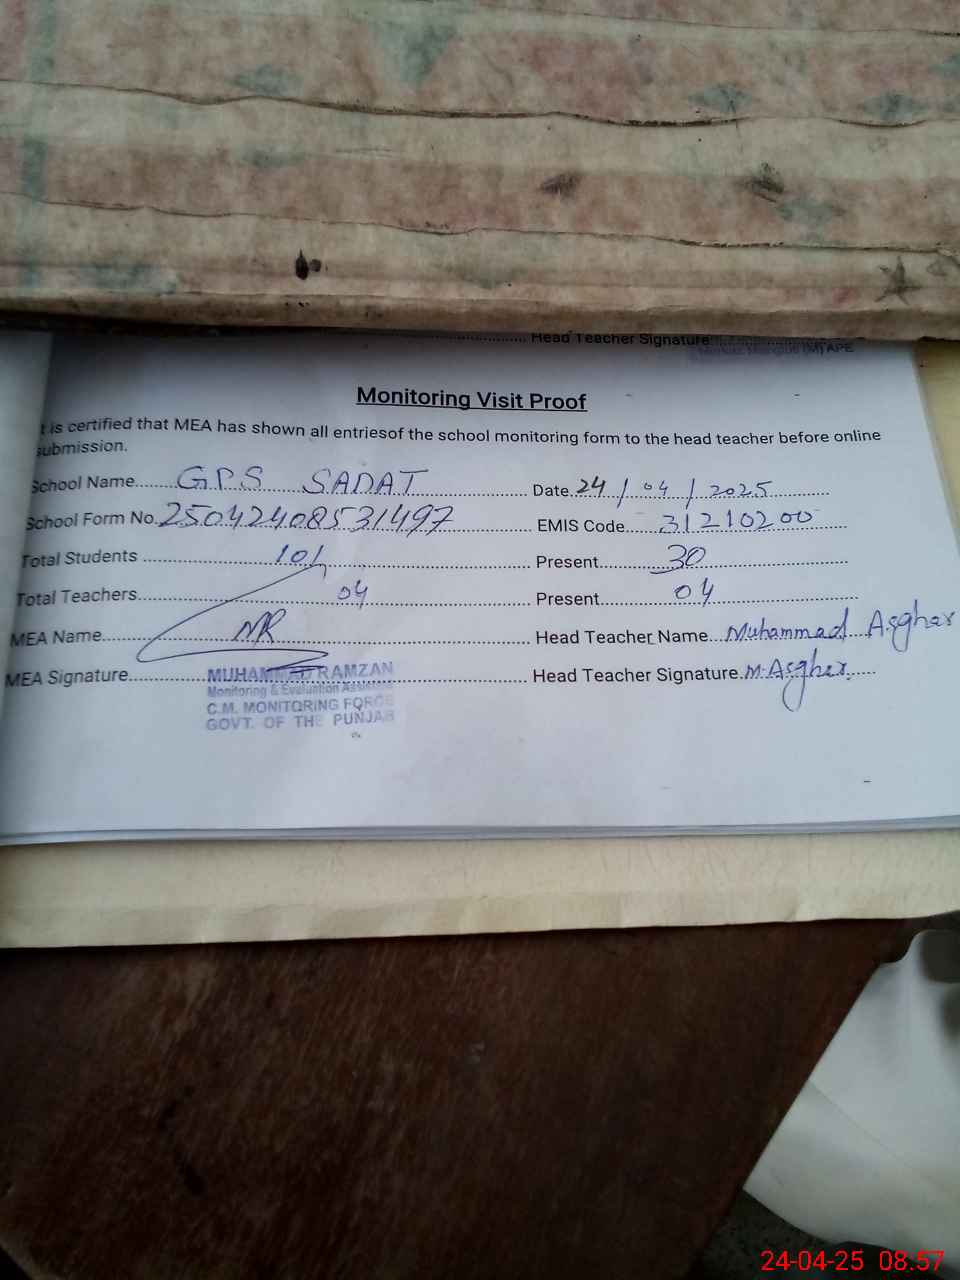 Head Teacher Signature
(M) APE
Monitoring Visit Proof
t is certified that MEA has shown all entriesof the school monitoring form to the head teacher before online
submission.
School Name GPS SADAT Date 24 / 04 / 2025
School Form No. 25042408531497 EMIS Code 31210200
Total Students 101 Present 30
Total Teachers 04 Present 04
MEA Name MR Head Teacher Name Muhammad Asghar
MEA Signature Head Teacher Signature. M. Asghar
MUHAMMAD RAMZAN
Monitoring & Evaluation Assistant
C.M. MONITORING FORCE
GOVT. OF THE PUNJAB
24-04-25 08.57